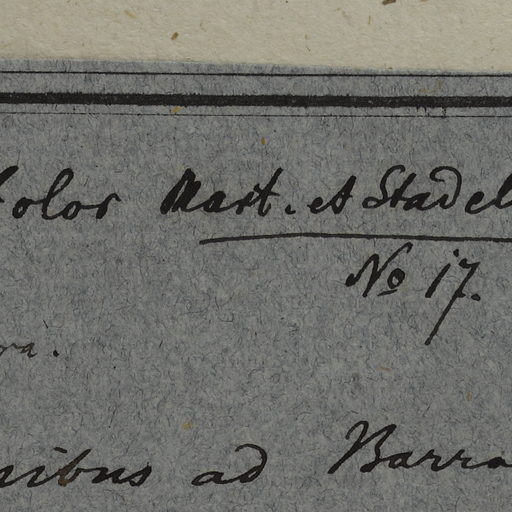 folor Mart. et Stadel
No 17.
ra.
nibus ad Barra